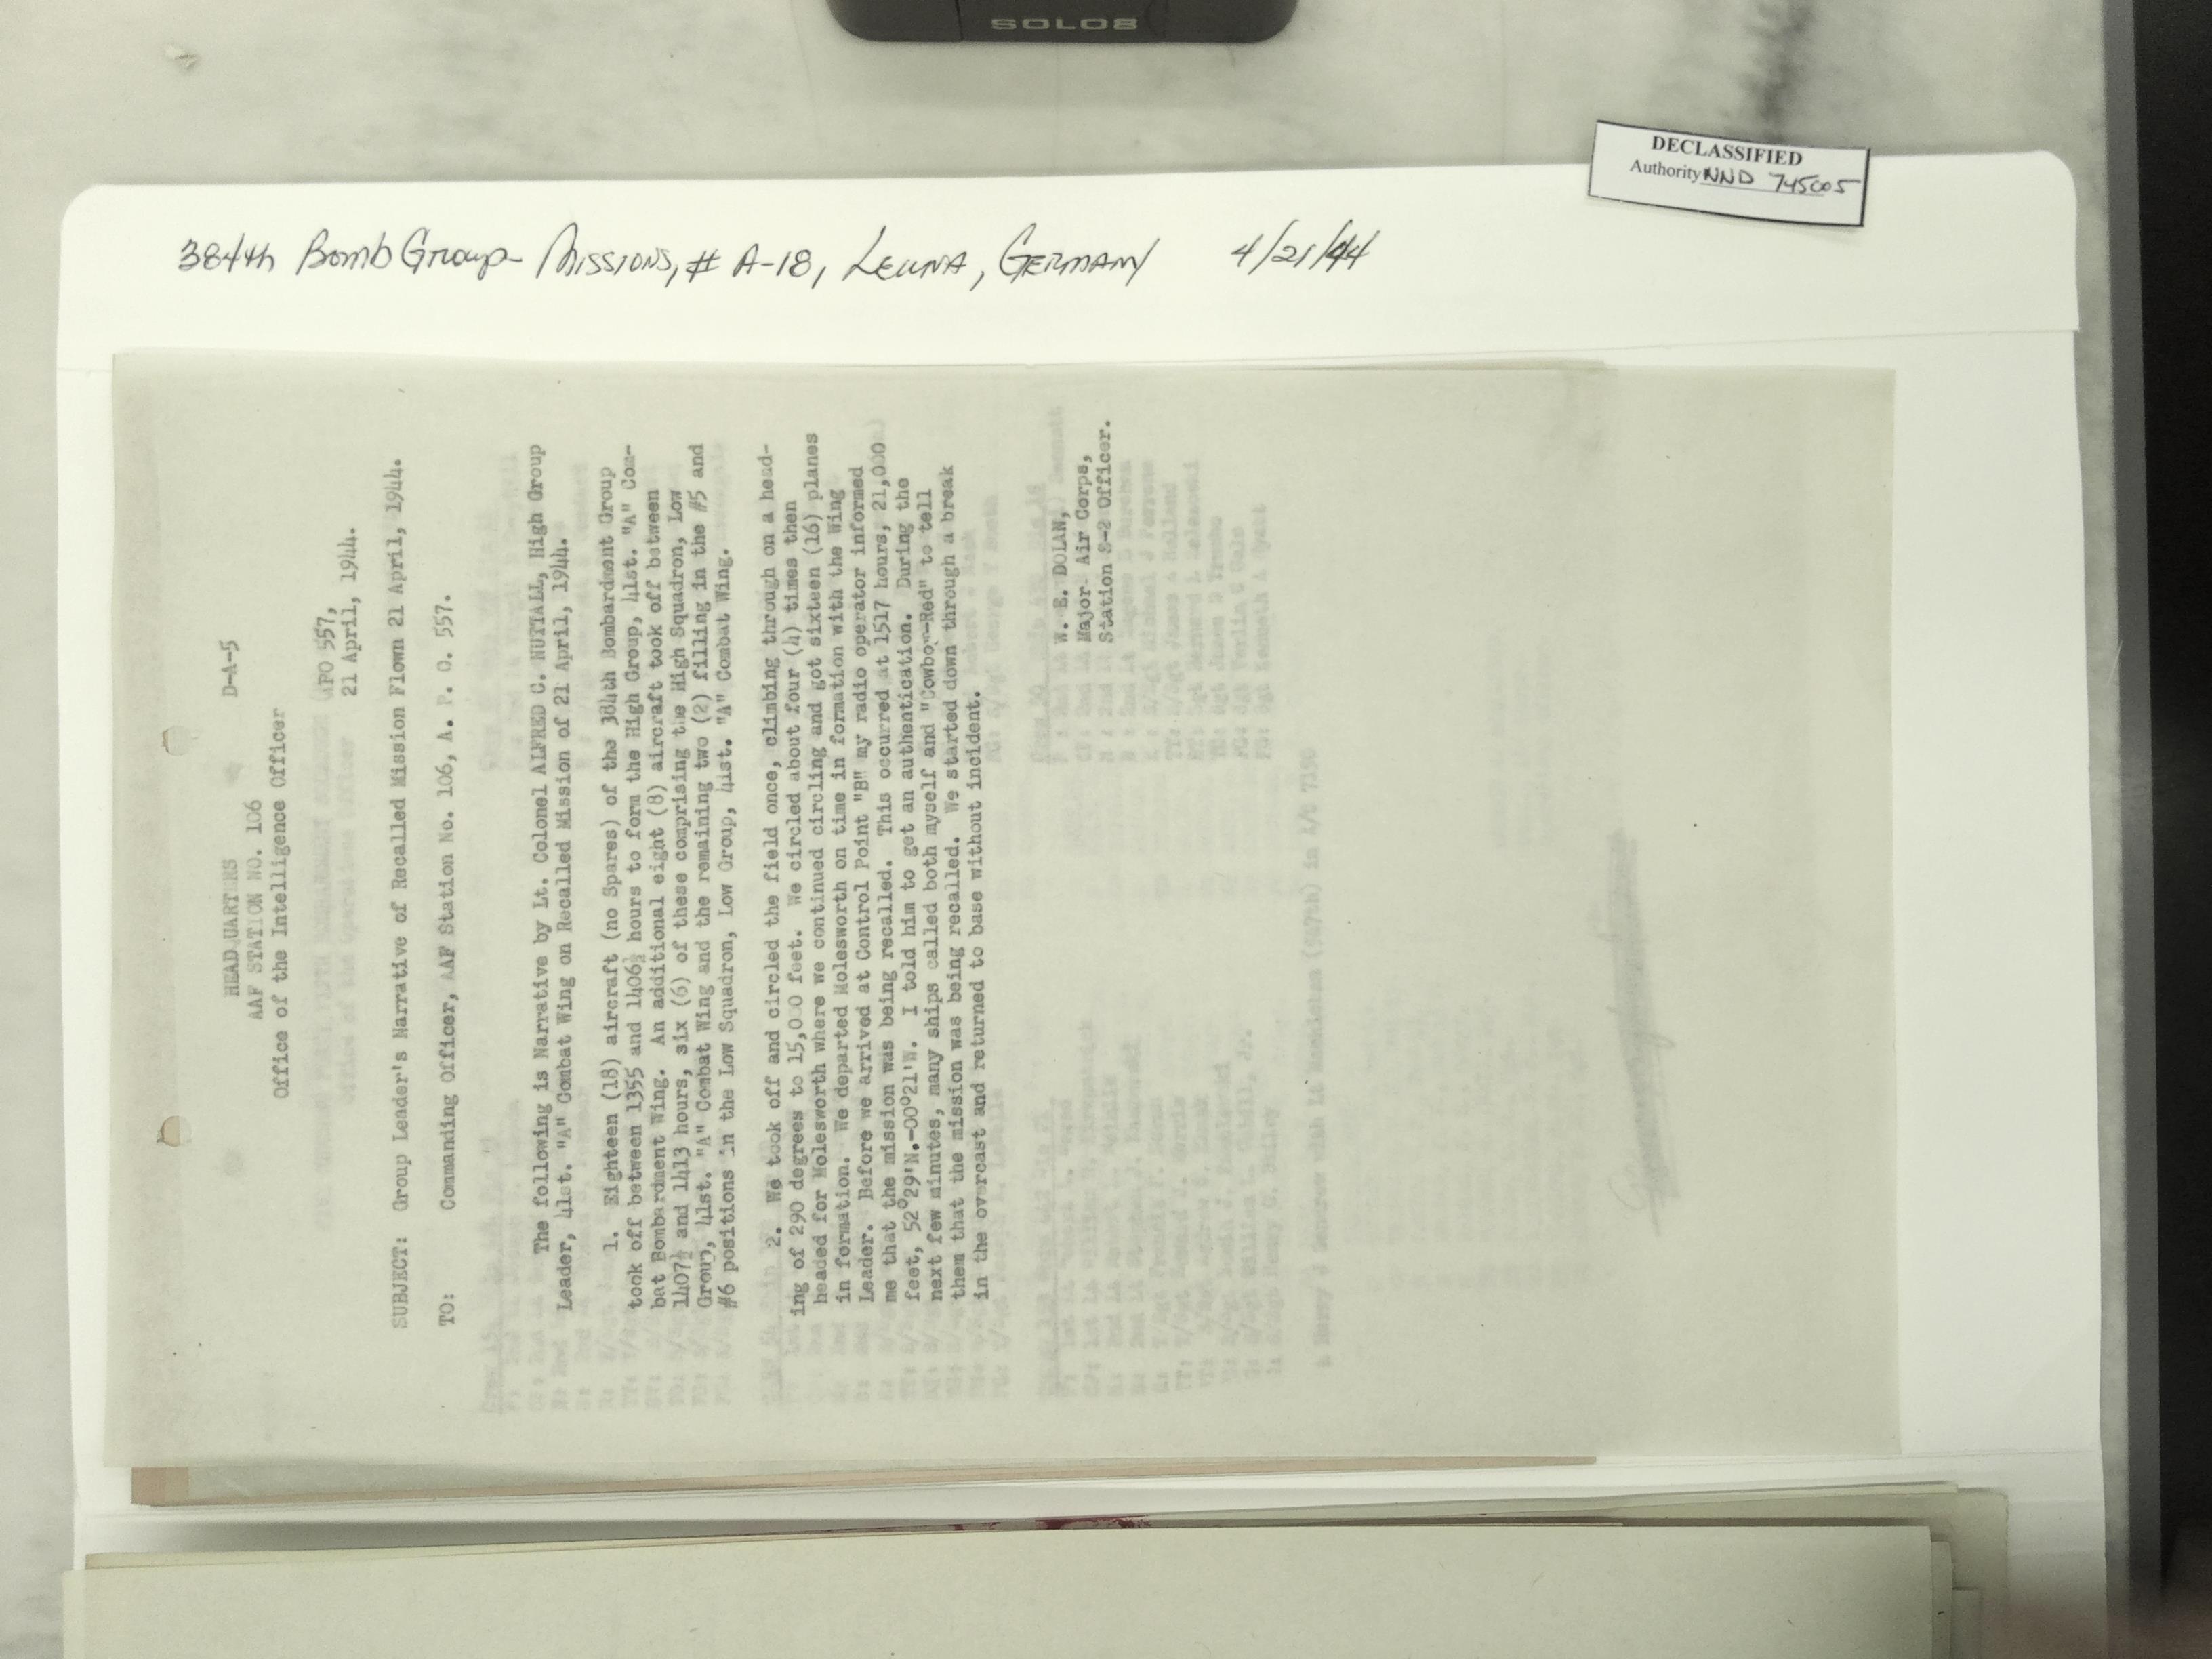 SOLO8
DECLASSIFIED
Authority NND 745005
384th Bomb Group- Missions, # A-18, Leuna, Germany 4/21/44
HEADQUARTERS D-A-5
AAF STATION NO. 106
Office of the Intelligence Officer
APO 557,
21 April, 1944.
SUBJECT: Group Leader's Narrative of Recalled Mission Flown 21 April, 1944.
TO: Commanding Officer, AAF Station No. 106, A. P. O. 557.
The following is Narrative by Lt. Colonel ALFRED C. NUTTALL, High Group
Leader, 41st. "A" Combat Wing on Recalled Mission of 21 April, 1944.
1. Eighteen (18) aircraft (no Spares) of the 384th Bombardment Group
took off between 1355 and 1406½ hours to form the High Group, 41st. "A" Com-
bat Bombardment Wing. An additional eight (8) aircraft took off between
1407½ and 1413 hours, six (6) of these comprising the High Squadron, Low
Group, 41st. "A" Combat Wing and the remaining two (2) filling in the #5 and
#6 positions in the Low Squadron, Low Group, 41st. "A" Combat Wing.
2. We took off and circled the field once, climbing through on a head-
ing of 290 degrees to 15,000 feet. We circled about four (4) times then
headed for Molesworth where we continued circling and got sixteen (16) planes
in formation. We departed Molesworth on time in formation with the Wing
Leader. Before we arrived at Control Point "B" my radio operator informed
me that the mission was being recalled. This occurred at 1517 hours, 21,000
feet, 52°29'N.-00°21'W. I told him to get an authentication. During the
next few minutes, many ships called both myself and "Cowboy-Red" to tell
them that the mission was being recalled. We started down through a break
in the overcast and returned to base without incident.
W. E. DOLAN,
Major Air Corps,
Station S-2 Officer.